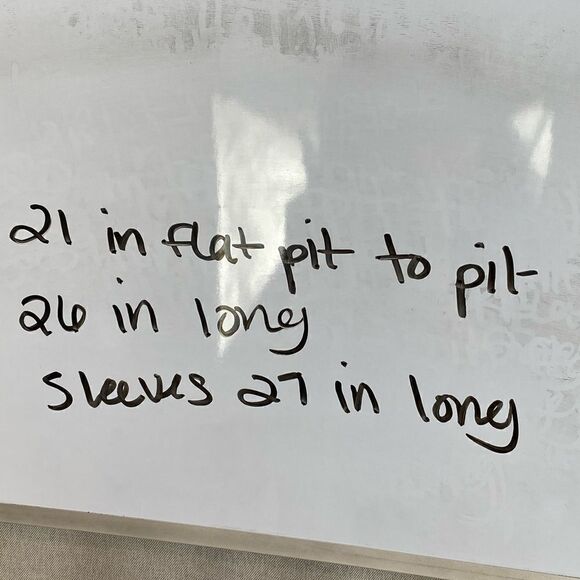 21 in flat pit to pit
26 in long
Sleeves 27 in long